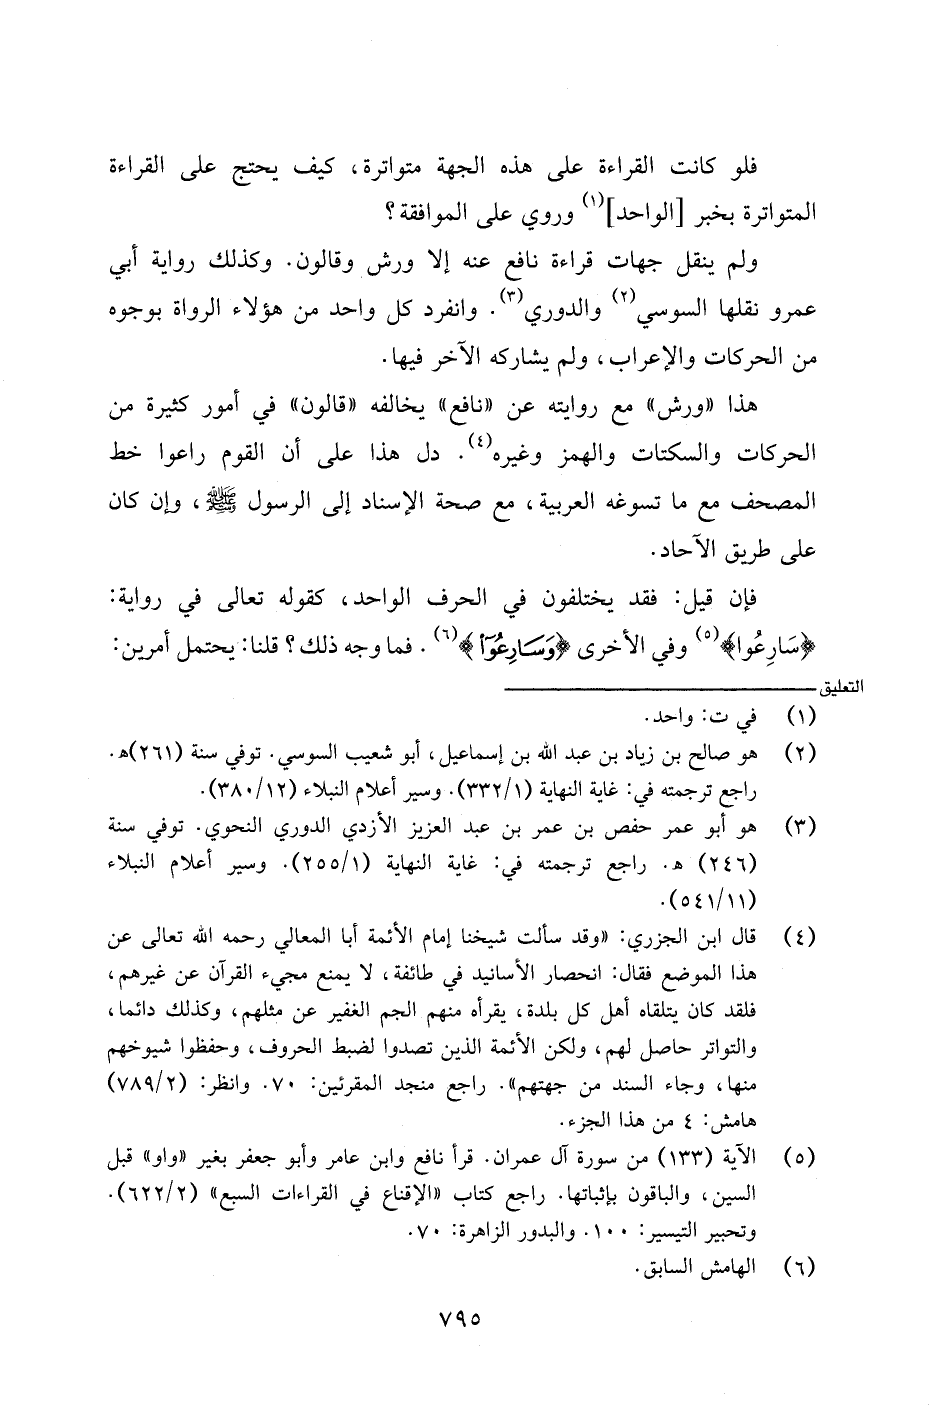 فلو كانت القراءة على هذه الجهة متواترة، كيف يحتج على القراءة
المتواترة بخبر [الواحد](١) وروي على الموافقة؟
ولم ينقل جهات قراءة نافع عنه إلا ورش وقالون. وكذلك رواية أبي
عمرو نقلها السوسي(٢) والدوري(٣). وانفرد كل واحد من هؤلاء الرواة بوجوه
من الحركات والإعراب، ولم يشاركه الآخر فيها.
هذا «ورش» مع روايته عن «نافع» يخالفه «قالون» في أمور كثيرة من
الحركات والسكتات والهمز وغيره(٤). دل هذا على أن القوم راعوا خط
المصحف مع ما تسوغه العربية، مع صحة الإسناد إلى الرسول ﷺ، وإن كان
على طريق الآحاد.
فإن قيل: فقد يختلفون في الحرف الواحد، كقوله تعالى في رواية:
﴿سَارِعُوا﴾(٥) وفي الأخرى ﴿وَسَارِعُوٓا۟﴾(٦). فما وجه ذلك؟ قلنا: يحتمل أمرين:
التعليق
(١) في ت: واحد.
(٢) هو صالح بن زياد بن عبد الله بن إسماعيل، أبو شعيب السوسي. توفي سنة (٢٦١)ه.
راجع ترجمته في: غاية النهاية (٣٣٢/١). وسير أعلام النبلاء (٣٨٠/١٢).
(٣) هو أبو عمر حفص بن عمر بن عبد العزيز الأزدي الدوري النحوي. توفي سنة
(٢٤٦) ه. راجع ترجمته في: غاية النهاية (٢٥٥/١). وسير أعلام النبلاء
(٥٤١/١١).
(٤) قال ابن الجزري: «وقد سألت شيخنا إمام الأئمة أبا المعالي رحمه الله تعالى عن
هذا الموضع فقال: انحصار الأسانيد في طائفة، لا يمنع مجيء القرآن عن غيرهم،
فلقد كان يتلقاه أهل كل بلدة، يقرأه منهم الجم الغفير عن مثلهم، وكذلك دائما،
والتواتر حاصل لهم، ولكن الأئمة الذين تصدوا لضبط الحروف، وحفظوا شيوخهم
منها، وجاء السند من جهتهم». راجع منجد المقرئين: ٧٠. وانظر: (٧٨٩/٢)
هامش: ٤ من هذا الجزء.
(٥) الآية (١٣٣) من سورة آل عمران. قرأ نافع وابن عامر وأبو جعفر بغير «واو» قبل
السين، والباقون بإثباتها. راجع كتاب «الإقناع في القراءات السبع» (٦٢٢/٢).
وتحبير التيسير: ١٠٠. والبدور الزاهرة: ٧٠.
(٦) الهامش السابق.
٧٩٥